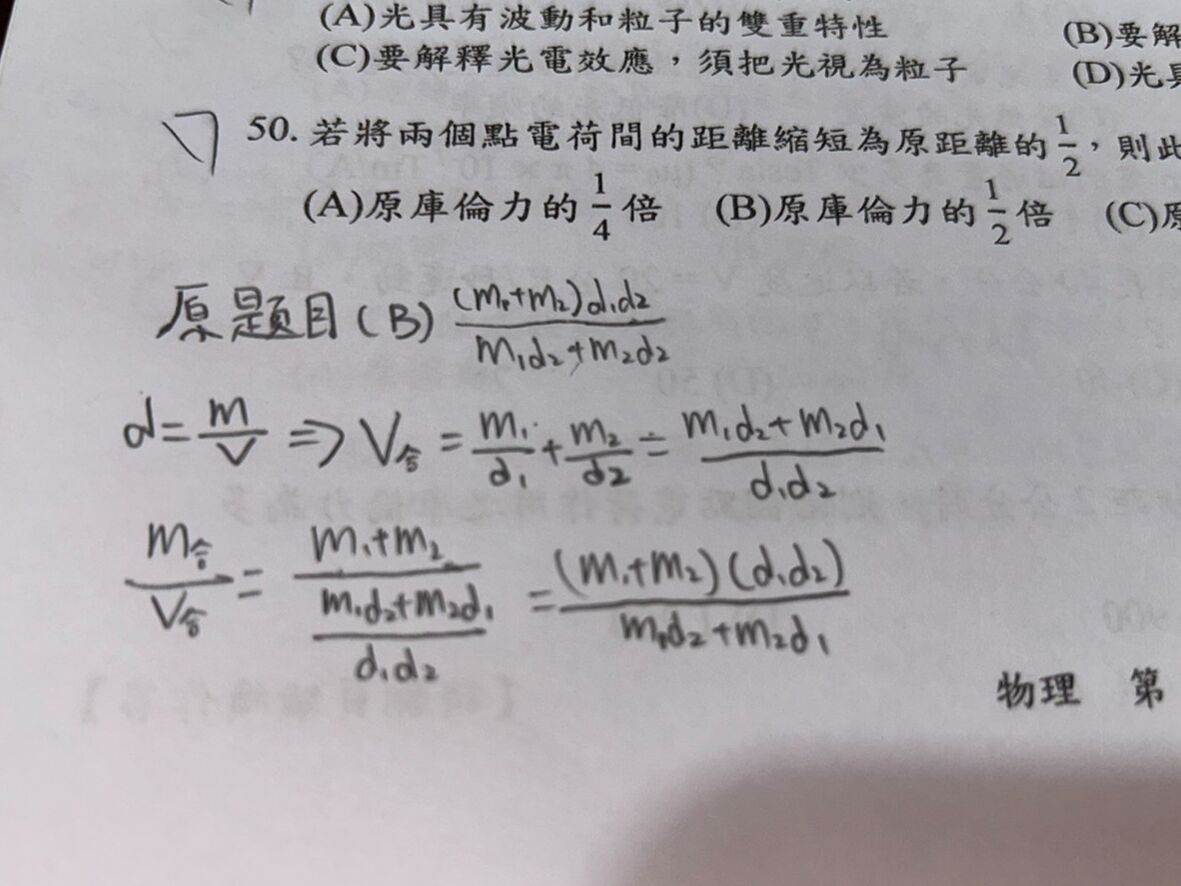 (A)光具有波動和粒子的雙重特性 (B)要解
(C)要解釋光電效應，須把光視為粒子 (D)光具
50. 若將兩個點電荷間的距離縮短為原距離的 1/2，則此
(A)原庫倫力的 1/4 倍 (B)原庫倫力的 1/2 倍 (C)原
原題目(B) (m₁+m₂)d₁d₂ / m₁d₂+m₂d₂
d = m/V => V合 = m₁/d₁ + m₂/d₂ = m₁d₂+m₂d₁ / d₁d₂
m合/V合 = m₁+m₂ / (m₁d₂+m₂d₁ / d₁d₂) = (m₁+m₂)(d₁d₂) / m₁d₂+m₂d₁
物理 第